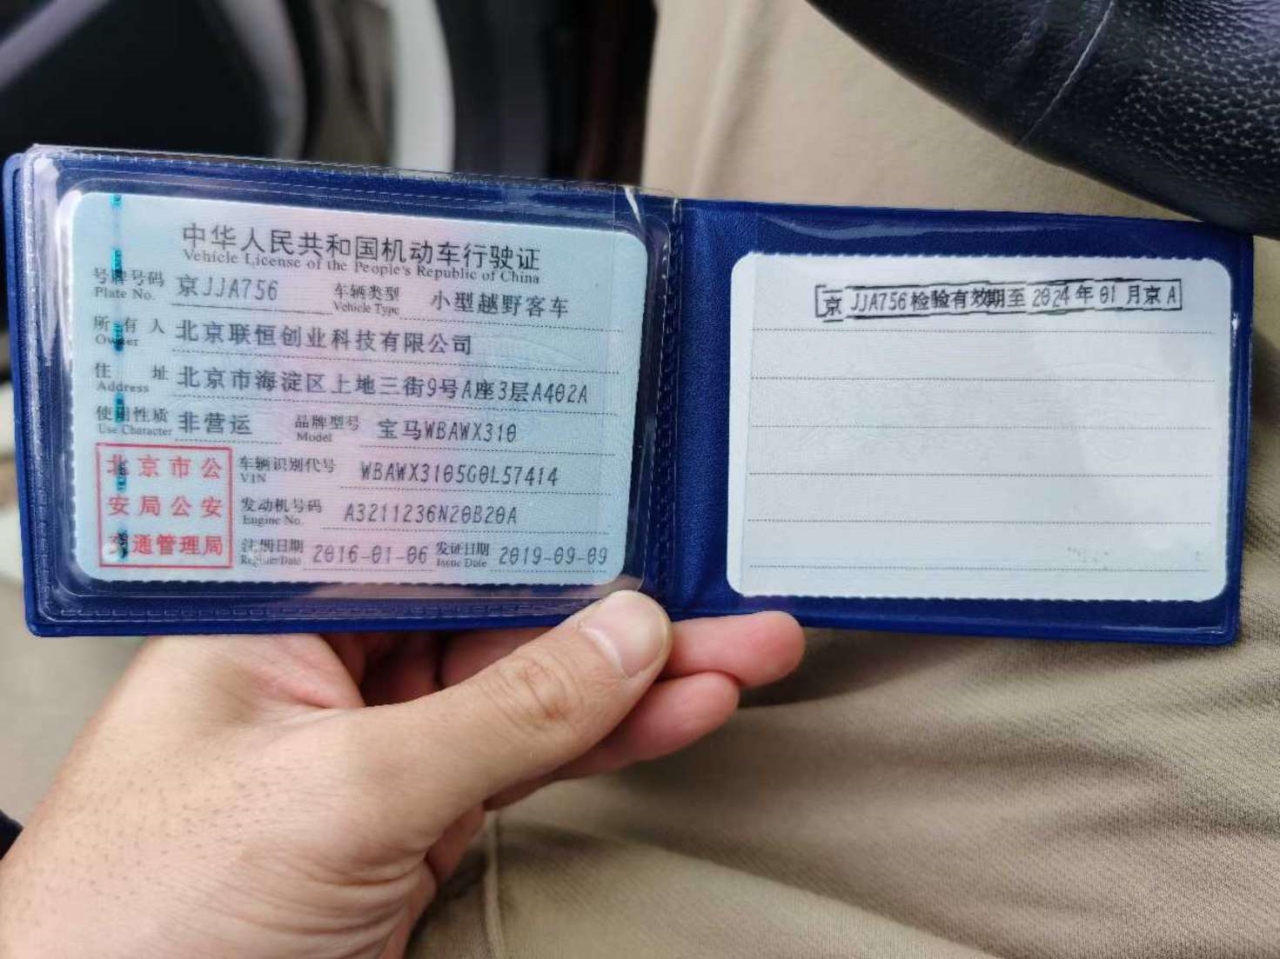 中华人民共和国机动车行驶证
Vehicle License of the People's Republic of China
号牌号码 京JJA756 车辆类型 小型越野客车
Plate No. Vehicle Type
所有人 北京联恒创业科技有限公司
Owner
住址 北京市海淀区上地三街9号A座3层A402A
Address
使用性质 非营运 品牌型号 宝马WBAWX310
Use Character Model
北京市公
安局公安
交通管理局
车辆识别代号 WBAWX3105G0L57414
VIN
发动机号码 A3211236N20B20A
Engine No.
注册日期 2016-01-06 发证日期 2019-09-09
Register Date Issue Date
京JJA756检验有效期至2024年01月京A